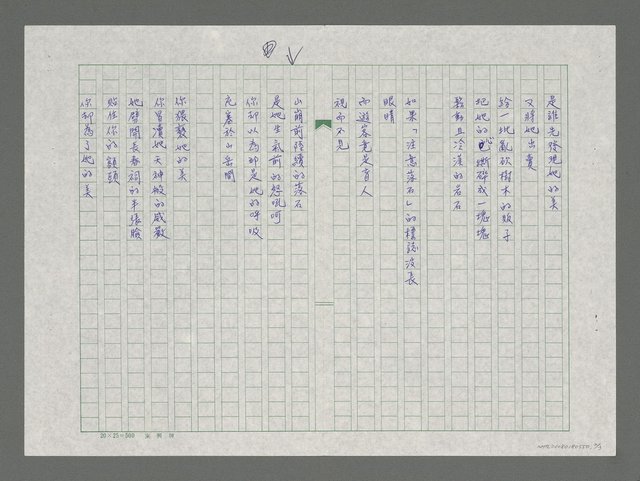 是誰先發現她的美
又將她出賣
給一批亂砍樹木的販子
把她的心撕碎成一塊塊
鬆動且冷漠的岩石
如果「注意落石」的標誌沒長
眼睛
而遊客竟是盲人
視而不見
山崩前陸續的落石
是她生氣前的怒吼呵
你卻以為那是她的呼吸
充塞於山岳間
你褻瀆她的美
你冒瀆她天神般的威嚴
她臂間長春祠的半張臉
貼住你的額頭
你卻為了她的美
20×25=500